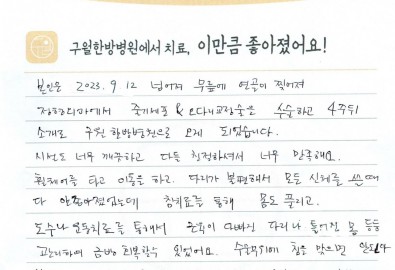 구월한방병원에서 치료, 이만큼 좋아졌어요!
본인은 2023. 9. 12 넘어져 무릎에 연골이 찢어져
정형외과에서 줄기세포 & 오다리교정술을 수술하고 4주뒤
소개로 구월 한방병원으로 오게 되었습니다.
시설도 너무 깨끗하고 다들 친절하셔서 너무 만족해요.
휠체어를 타고 이동을 하고. 다리가 불편해서 모든 신체를 쓴 때
다 안 침치료를 통해 몸도 풀리고.
도수나 운동치료를 통해서 근육이 빠진 다리나 틀어진 몸 등등
관리하여 금방 회복할수 있었어요. 수술부위에 침을 맞으면